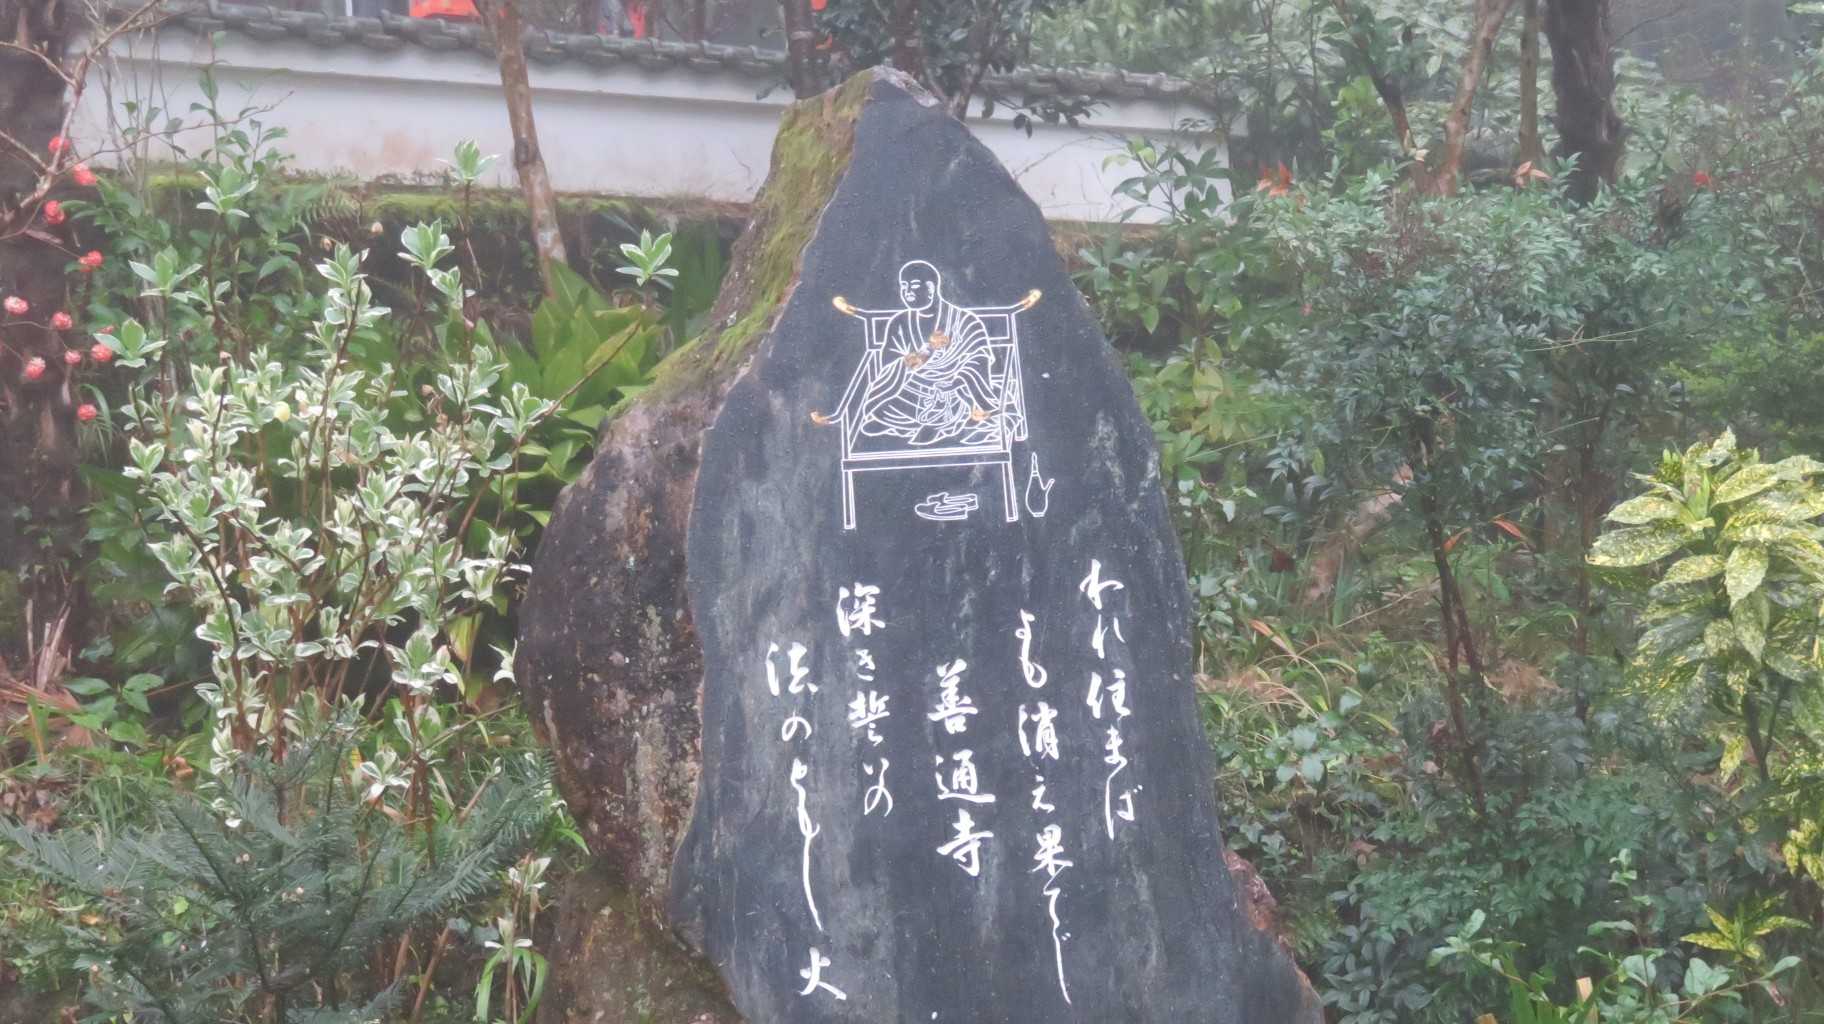 われ住まば
よも消え果てじ
善通寺
深き誓いの
法のともし火